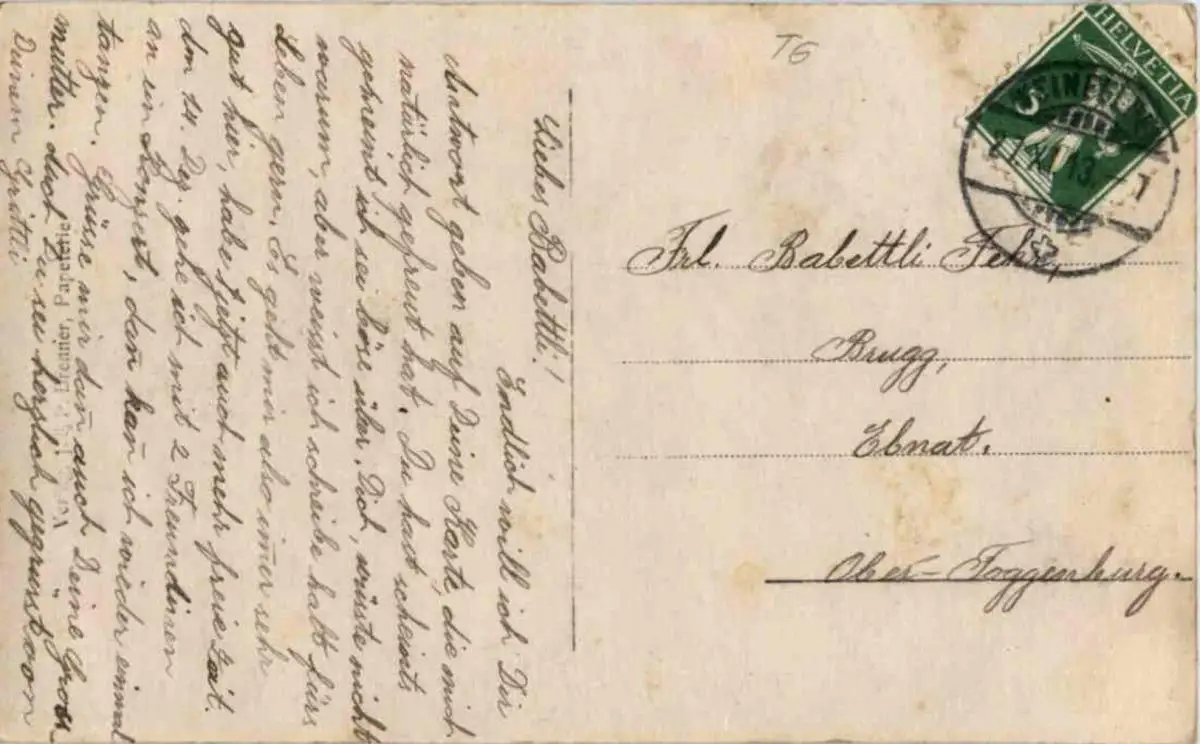 Liebes Babettli!
Endlich will ich Dir
Antwort geben auf Deine Karte, die mich
natürlich gefreut hat. Du hast scheints
gemeint ich sei böse über Dich, wüsste nicht
warum, aber weisst ich schreibe halt fürs
Leben gern. Es geht mir also im̄er sehr
gut hier, habe jetzt auch mehr freie Zeit.
Am 14. Dez. gehe ich mit 2 Freundinen
an ein Konzert, dan̄ kan̄ ich wieder einmal
tanzen. Grüsse mir dan̄ auch Deine Gross
mutter. Auch Du sei herzlich gegrüsst von
Deinem Grittli
Papeterie
T6
HELVETIA
5
13
Frl. Babettli Fehr,
Brugg,
Ebnat.
Ober-Toggenburg.